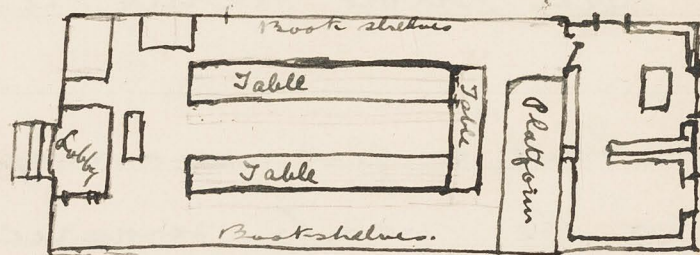 Book shelves
Table
Table
Lobby
Platform
Table
Bookshelves.